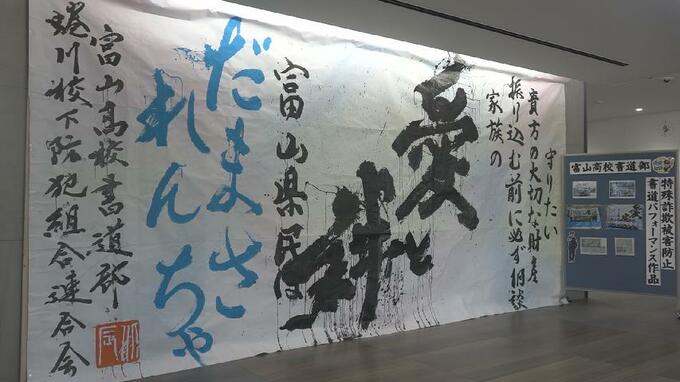 守りたい
貴方の大切な財産
振り込む前に必ず相談
家族の
愛と
絆
富山県民は
だまさ
れんちゃ
富山高校書道部
蜷川校下防犯組合連合会
富山高校書道部
特殊詐欺被害防止
書道パフォーマンス作品